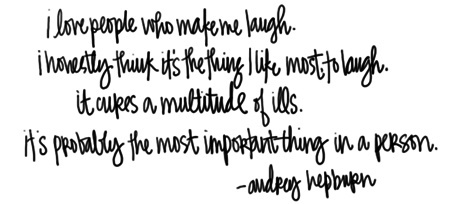 i love people who make me laugh.
i honestly think it's the thing I like most to laugh.
it cures a multitude of ills.
it's probably the most important thing in a person.
-audrey hepburn